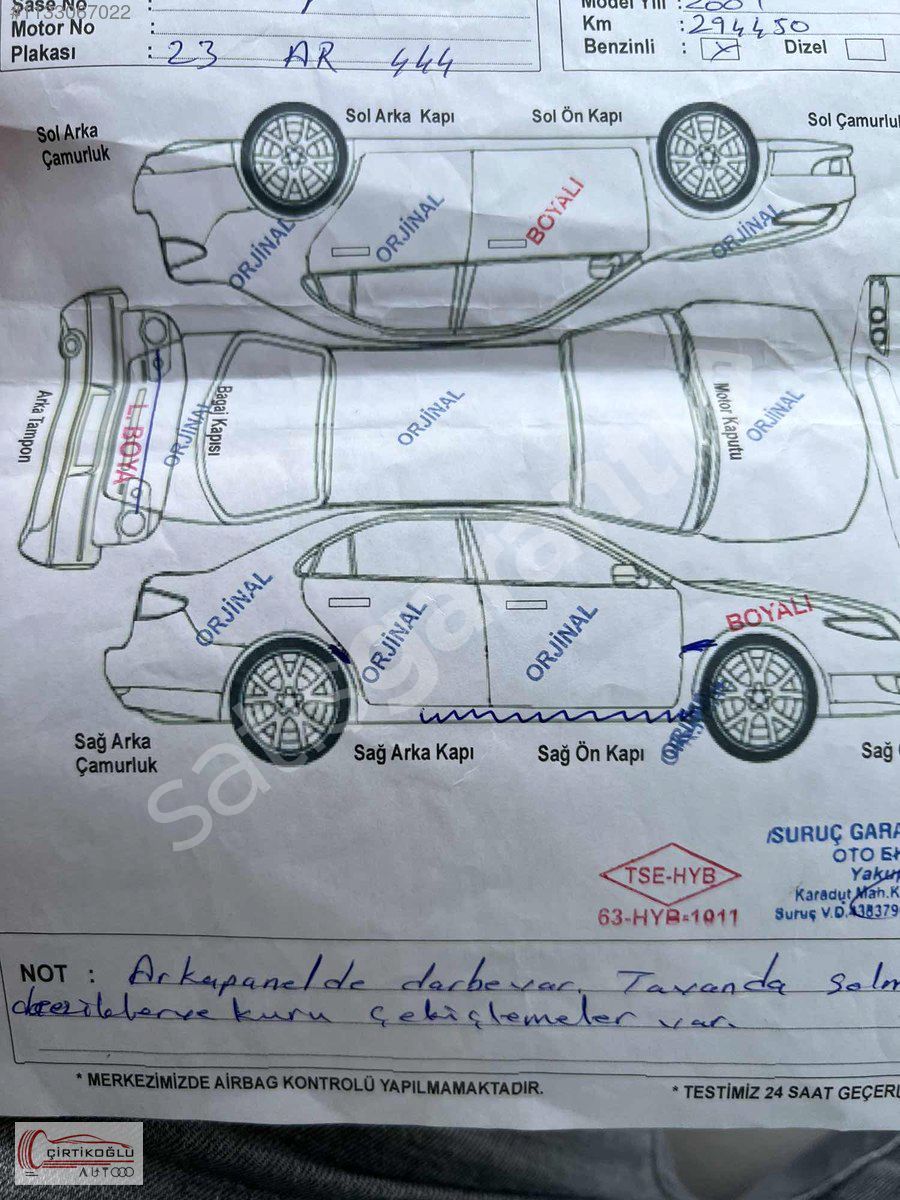 #1133067022
Şase No :
Motor No :
Plakası : 23 AR 444
Model Yılı :
Km : 294450
Benzinli : X Dizel
Sol Arka
Çamurluk
Sol Arka Kapı
Sol Ön Kapı
Sol Çamurluk
ORJİNAL
ORJİNAL
BOYALI
ORJİNAL
Arka Tampon
L.BOYA
ORJİNAL
Bagaj Kapısı
ORJİNAL
Motor Kaputu
ORJİNAL
ORJİNAL
ORJİNAL
ORJİNAL
BOYALI
ORJİNAL
Sağ Arka
Çamurluk
Sağ Arka Kapı
Sağ Ön Kapı
Sağ
satisgarantum
TSE-HYB
63-HYB-1011
SURUÇ GARA
OTO EK
Yakup
Karadut Mah.K
Suruç V.D.
NOT : Arkapanelde darbevar. Tavanda
ve kuru çekiçlemeler var.
* MERKEZİMİZDE AİRBAG KONTROLÜ YAPILMAMAKTADIR.
* TESTİMİZ 24 SAAT GEÇERL
ÇİRTİKOĞLU
AUTO